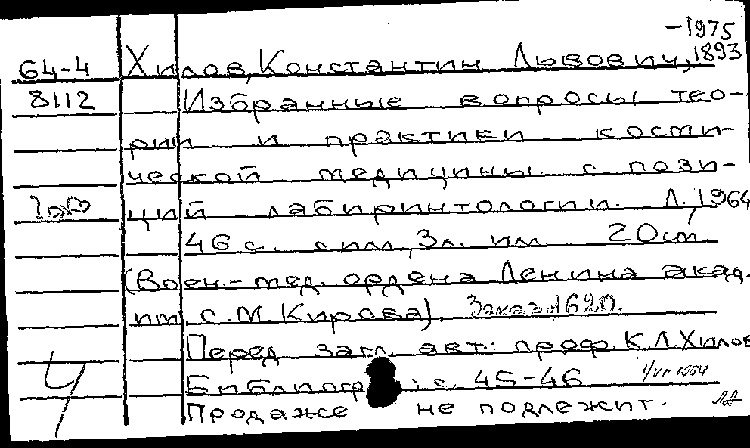 -1975
64-4 Хилов, Константин Львович, 1893
8112 Избранные вопросы тео-
рии и практики косми-
ческой медицины с пози-
ций лабиринтологии. Л., 1964
46 с. с илл., 3 л. илл. 20 см
(Воен.-мед. ордена Ленина акад.
им. С. М. Кирова). Заказ 1620.
Перед загл. авт.: проф. К. Л. Хилов
Библиогр.: с. 45-46
Продаже не подлежит.
Ч